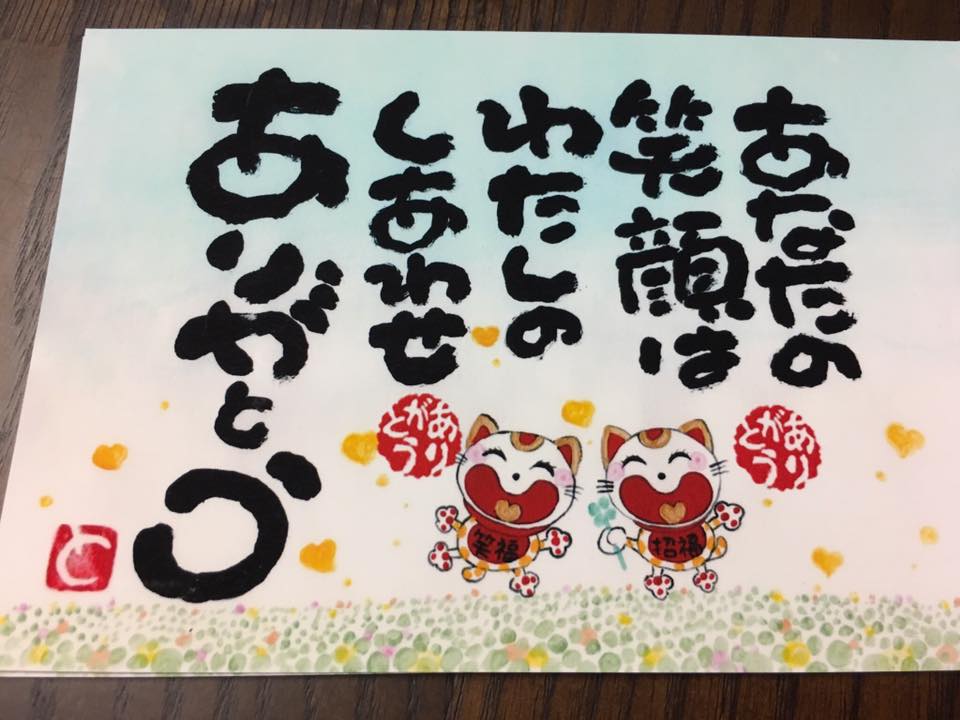 あなたの
笑顔は
わたしの
しあわせ
ありがとう
ありがとう
ありがとう
招福
笑福
と